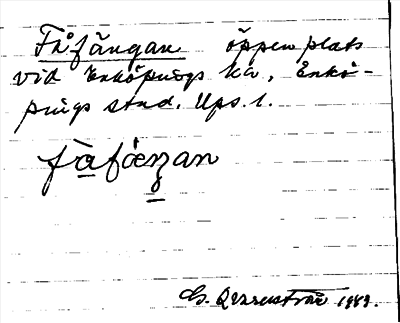 Fåfängan öppen plats
vid Enköpings ka, Enkö-
pings stad. Ups. l.
fàfæŋan
G. 1989.